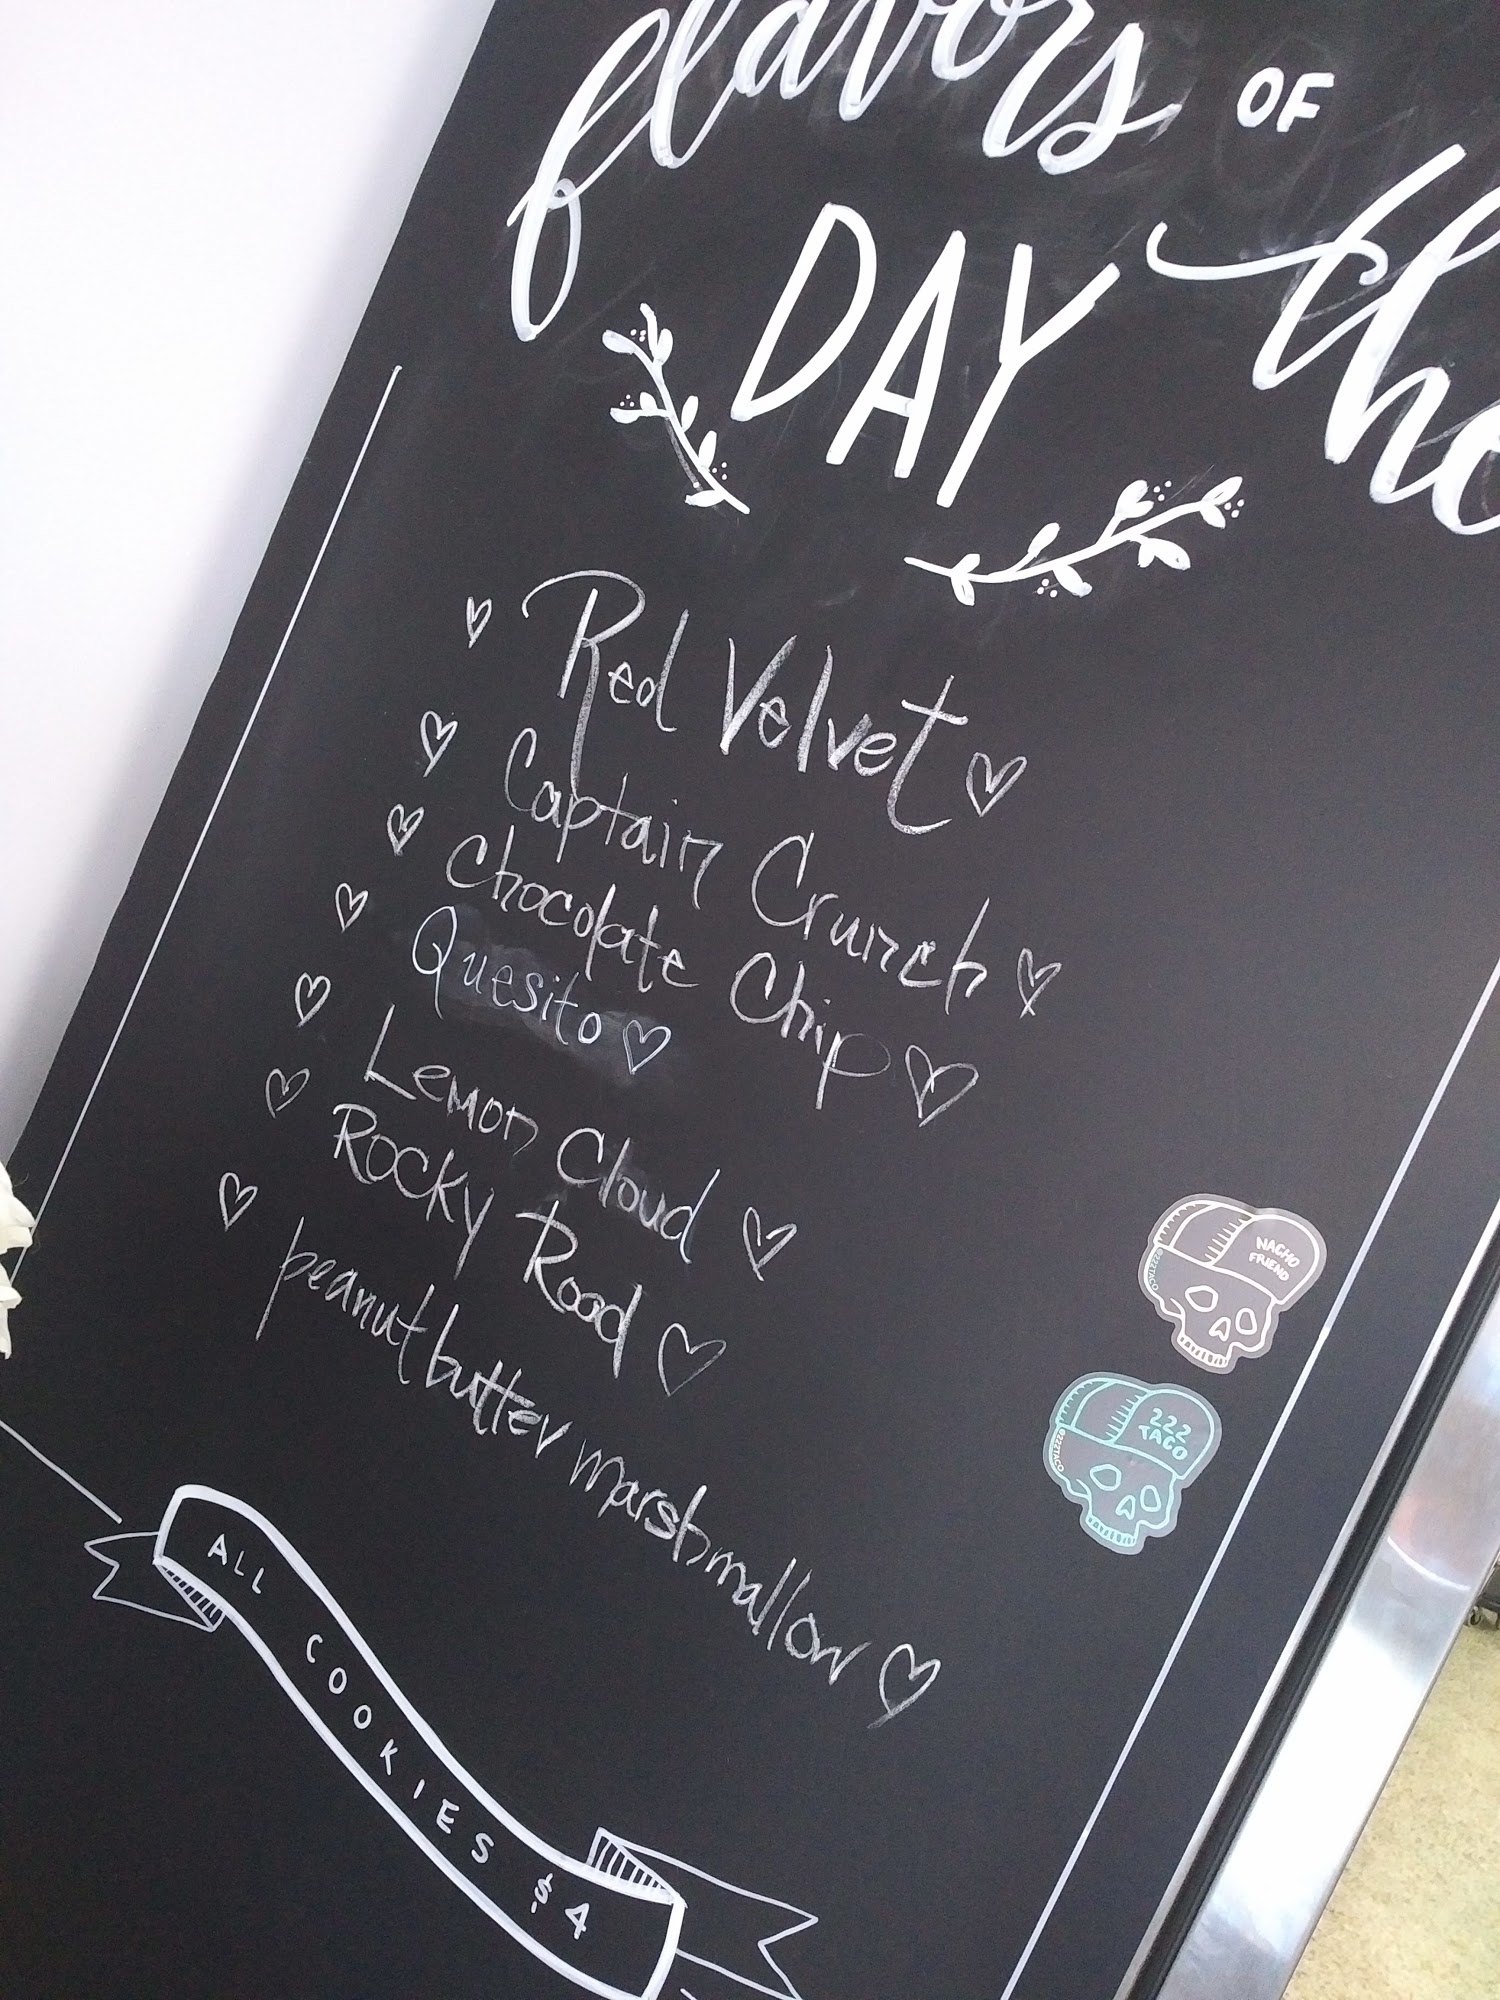 flavors OF the
DAY
Red Velvet
Captain Crunch
Chocolate Chip
Quesito
Lemon Cloud
Rocky Road
peanut butter marshmallow
NACHO
FRIEND
@222TACO
222
TACO
@222TACO
ALL COOKIES $4